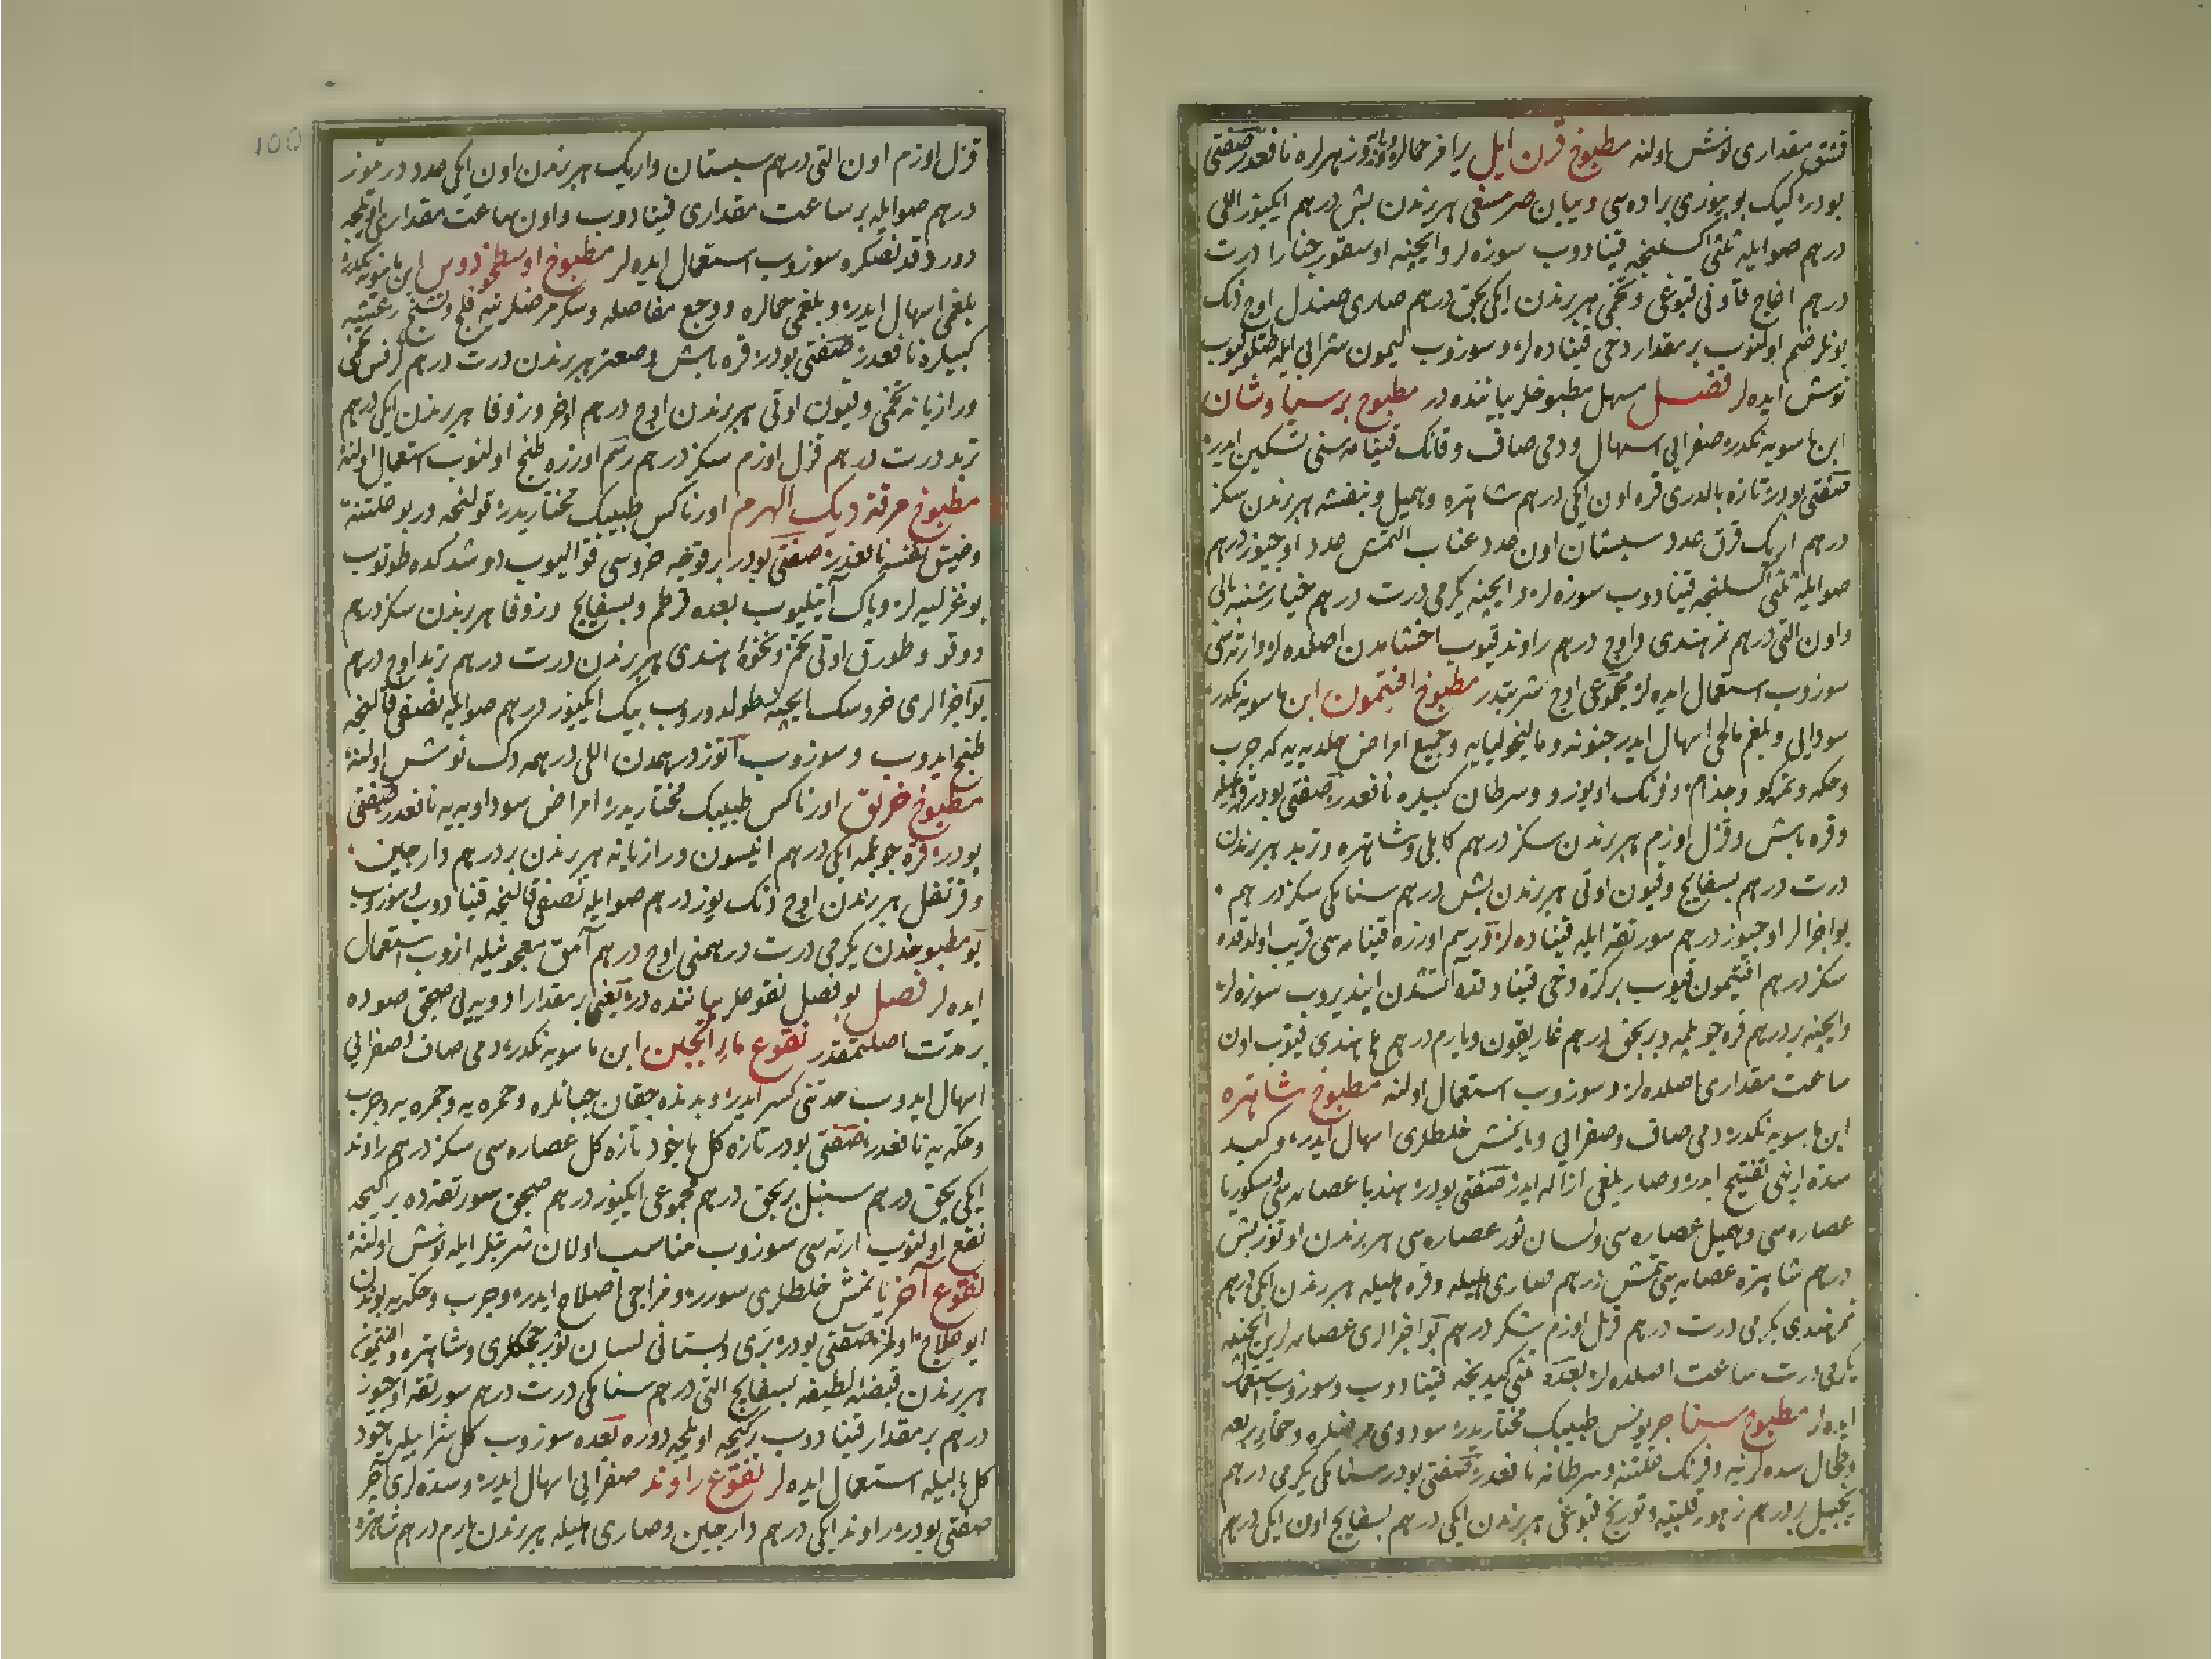 فنتق مقداری نوش اولنه مطبوخ قرن ایل یرامز حمالره و زهرلره نافعدر صفتی
بودر کیک بوینوزی براده‌سی و یبان صرمسغی هر برندن بش درهم ایکیوز اللی
درهم صو ایله ثلثی اکسلنجه قینادوب سوزه‌لر و ایچنه اوسقورجنارا درت
درهم اغاج قاونی قبوغی و تخمی هر برندن ایکی بچق درهم صاری صندل اوچ دنک
بونلر ضم اولنوب بر مقدار دخی قیناده‌لر و سوزوب لیمون شرابی ایله طتلولیوب
نوش ایده‌لر فصل مسهل مطبوخلر بیاننده در مطبوخ برسیاوشان
ابن ماسویه نکدر صفرایی اسهال و دمی صاف و قانک قینامه‌سنی تسکین ایدر
صفتی بودر تازه بالدری قره اون ایکی درهم شاهتره و همیل و بنفشه هر برندن سکز
درهم اریک قرق عدد سبستان اون عدد عناب التمش عدد اوچیوز درهم
صو ایله ثلثی اکسلنجه قینادوب سوزه‌لر و ایچنه یکرمی درت درهم خیارشنبه بالی
و اون التی درهم تمر هندی و اوچ درهم راوند قیوب اخشامدن اصلده‌لر و ارته‌سی
سوزوب استعمال ایده‌لر مجموعی اوچ شربتدر مطبوخ افتیمون ابن ماسویه نکدر
سودایی و بلغم مالحی اسهال ایدر جنونه و مالیخولیایه و جمیع امراض جلدیه‌یه که جرب
و حکه و تمرکو و جذام و فرنک اویوزو و سرطان کبیلره نافعدر صفتی بودر قره هلیله
و قره باش و قزل اوزم هر برندن سکز درهم کابلی و شاهتره و تربد هر برندن
درت درهم بسفایج و قیون اوتی هر برندن بش درهم سنا مکی سکز درهم
بو اجزالر اوچیوز درهم سورتقه ایله قیناده‌لر رسم اوزره قینامه‌سی قریب اولدقده
سکز درهم افتیمون قیوب بر کره دخی قینادقده آتشدن ایندیروب سوزه‌لر
و ایچنه بر درهم قره جوپلمه و بر بچق درهم غاریقون و یارم درهم ملح هندی قیوب اون
ساعت مقداری اصلده‌لر و سوزوب استعمال اولنه مطبوخ شاهتره
ابن ماسویه نکدر دمی صاف و صفرایی و یانمش خلطلری اسهال ایدر و کبد
سده‌لرینی تفتیح ایدر و صاری بلغمی ازاله ایدر صفتی بودر هندبا عصاره‌سی اسکوریا
عصاره‌سی و همیل عصاره‌سی و لسان ثور عصاره‌سی هر برندن اوتوز بش
درهم شاهتره عصاره‌سی التمش درهم صاری هلیله و قره هلیله هر برندن ایکی درهم
تمر هندی یکرمی درت درهم قزل اوزم سکز درهم بو اجزالری عصاره‌لرین ایچنده
یکرمی درت ساعت اصلده‌لر بعده ثلثی کیدنجه قینادوب و سوزوب استعمال
ایده‌لر مطبوخ سنا جریونس طبیبک مختاریدر سودوی مرضلره و حماء ربعه
و طحال سده‌لرینه و فرنک علتنه و سرطانه نافعدر صفتی بودر سنا مکی یکرمی درهم
زنجبیل بر درهم و تورنج قبوغی هر برندن ایکی درهم بسفایج اون ایکی درهم
100
قزل اوزم اون التی درهم سبستان و اریک هر برندن اون ایکی عدد درتیوز
درهم صو ایله بر ساعت مقداری قینادوب و اون ساعت مقداری اویلجه
دوردقدنصکره سوزوب استعمال ایده‌لر مطبوخ اوسطخودوس ابن ماسویه نکدر
بلغمی اسهال ایدر و بلغمی حمالره و وجع مفاصله و سکر مرضلرینه فلج و تشنج رعشه
کبیلره نافعدر صفتی بودر قره باش و صعتر هر برندن درت درهم کرفس تخمی
و رازیانه تخمی و قیون اوتی هر برندن اوچ درهم اذخر و زوفا هر برندن ایکی درهم
تربد درت درهم قزل اوزم سکز درهم رسم اوزره طبخ اولنوب استعمال اولنه
مطبوخ مرقة دیک الهرم اورناکس طبیبک مختاریدر قولنجه و ربو علتنه
و ضیق نفسه نافعدر صفتی بودر بر قوجه خروسی قوالیوب دوشدکده طوتوب
بوغزلیه‌لر و پاک آیتلیوب بعده قرطم و بسفایج و زوفا هر برندن سکز درهم
دوقو و طورق اوتی تخم و نخوۀ هندی هر برندن درت درهم تربد اوچ درهم
بو اجزالری خروسک ایچنه طولدوروب بیک ایکیوز درهم صو ایله نصفی قالنجه
طبخ ایدوب و سوزوب اوتوز درهمدن اللی درهمه دک نوش اولنه
مطبوخ خربق اورناکس طبیبک مختاریدر امراض سوداویه‌یه نافعدر صفتی
بودر قره جوپلمه ایکی درهم انیسون و رازیانه هر برندن بر درهم دارچین
و قرنفل هر برندن اوچ دنک یوز درهم صو ایله نصفی قالنجه قینادوب و سوزوب
بو مطبوخدن یکرمی درت درهمنی اوچ درهم آمق معجونیله ازوب استعمال
ایده‌لر فصل بو فصل نقوعلر بیاننده در یعنی بر مقدار ادویه‌یی صیجق صوده
بر مدت اصلتمقدر نقوع ماء الجبن ابن ماسویه نکدر دمی صاف و صفرایی
اسهال ایدوب حدتنی کسر ایدر و بدنده چیقان چبانلره و حمره‌یه و جمره‌یه و جرب
و حکه‌یه نافعدر صفتی بودر تازه کل یاخود تازه کل عصاره‌سی سکز درهم راوند
ایکی بچق درهم سنبل بر بچق درهم مجموعی ایکیوز درهم صیجق سورتقه‌ده بر کیجه
نقع اولنوب ارته‌سی سوزوب مناسب اولان شربتلر ایله نوش اولنه
نقوع آخر یانمش خلطلری سورر و مزاجی اصلاح ایدر و جرب و حکه‌یه بوندن
ایو علاج اولمز صفتی بودر بری و بستانی لسان ثور چیچکلری و شاهتره و افتیمون
هر برندن قبضه لطیفه بسفایج التی درهم سنا مکی درت درهم سورتقه اوچیوز
درهم بر مقدار قینادوب بر کیجه اویلجه دوره بعده سوزوب کل شرابیله یاخود
کل بالیله استعمال ایده‌لر نقوع راوند صفرایی اسهال ایدر و سده‌لری آچر
صفتی بودر راوند ایکی درهم دارچین و صاری هلیله هر برندن یارم درهم شاهتره